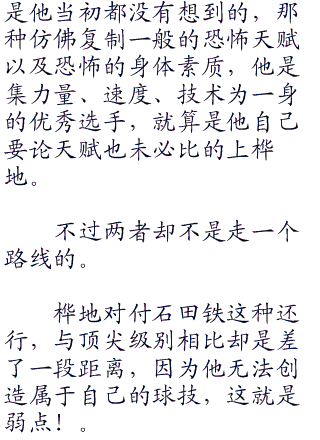 是他当初都没有想到的，那
种仿佛复制一般的恐怖天赋
以及恐怖的身体素质，他是
集力量、速度、技术为一身
的优秀选手，就算是他自己
要论天赋也未必比的上桦
地。
不过两者却不是走一个
路线的。
桦地对付石田铁这种还
行，与顶尖级别相比却是差
了一段距离，因为他无法创
造属于自己的球技，这就是
弱点！。